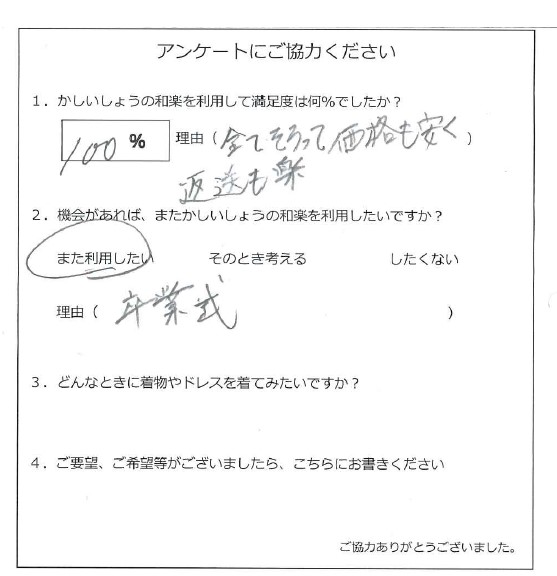 アンケートにご協力ください
1．かしいしょうの和楽を利用して満足度は何%でしたか？
100 % 理由（全てそろって価格も安く）
返送も楽
2．機会があれば、またかしいしょうの和楽を利用したいですか？
また利用したい そのとき考える したくない
理由（卒業式）
3．どんなときに着物やドレスを着てみたいですか？
4．ご要望、ご希望等がございましたら、こちらにお書きください
ご協力ありがとうございました。